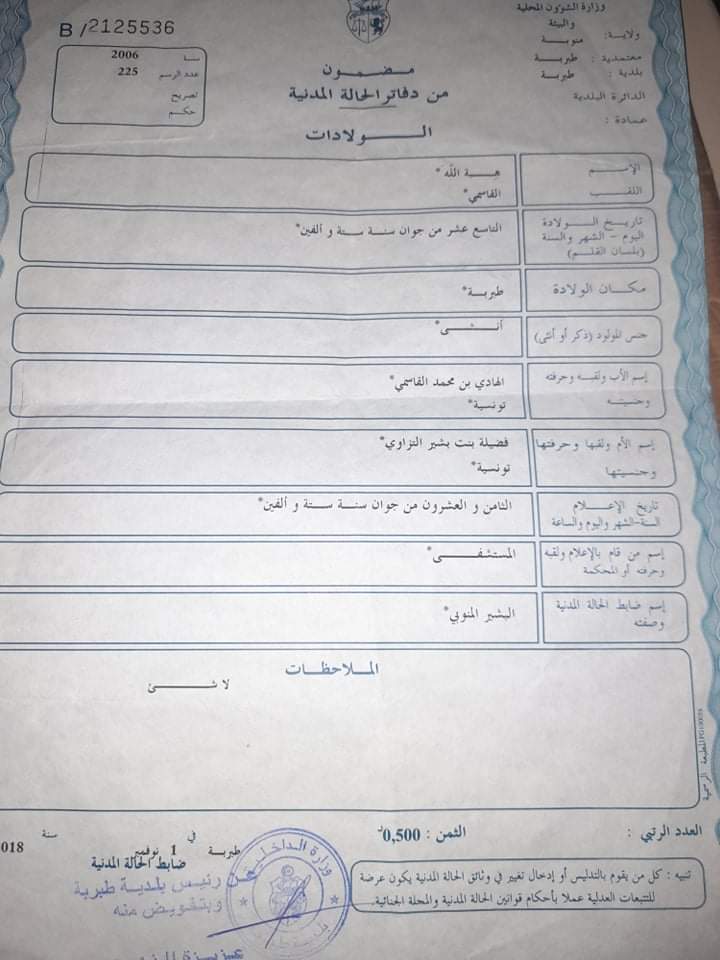 وزارة الشؤون المحلية
والبيئة
ولاية: منوبة
معتمدية : طبربة
بلدية : طبربة
الدائرة البلدية
عمادة :
B / 2125536
سنة 2006
عدد الرسم 225
تصريح
حكم
مضمون
من دفاتر الحالة المدنية
الولادات
الإسم
هبة الله *
اللقب
القاسمي*
تاريخ الولادة
اليوم - الشهر والسنة
(بلسان القلم)
التاسع عشر من جوان سنة ستة و ألفين*
مكان الولادة
طبربة*
جنس المولود (ذكر أو أنثى)
أنثى*
إسم الأب ولقبه وحرفته
وجنسيته
الهادي بن محمد القاسمي*
تونسية*
إسم الأم ولقبها وحرفتها
وجنسيتها
فضيلة بنت بشير التزاوي*
تونسية*
تاريخ الإعلام
السنة-الشهر واليوم والساعة
الثامن و العشرون من جوان سنة ستة و ألفين*
إسم من قام بالإعلام ولقبه
وحرفته أو المحكمة
المستشفى*
إسم ضابط الحالة المدنية
وصفته
البشير المنوبي*
الملاحظات
لا شئ
المطبعة الرسمية
العدد الرتبي :
الثمن : 0,500د
طبربة في 1 نوفمبر سنة 018
ضابط الحالة المدنية
عن رئيس بلدية طبربة
وبتفويض منه
وزارة الداخلية
تنبيه : كل من يقوم بالتدليس أو إدخال تغيير في وثائق الحالة المدنية يكون عرضة
للتتبعات العدلية عملا بأحكام قوانين الحالة المدنية والمجلة الجنائية.